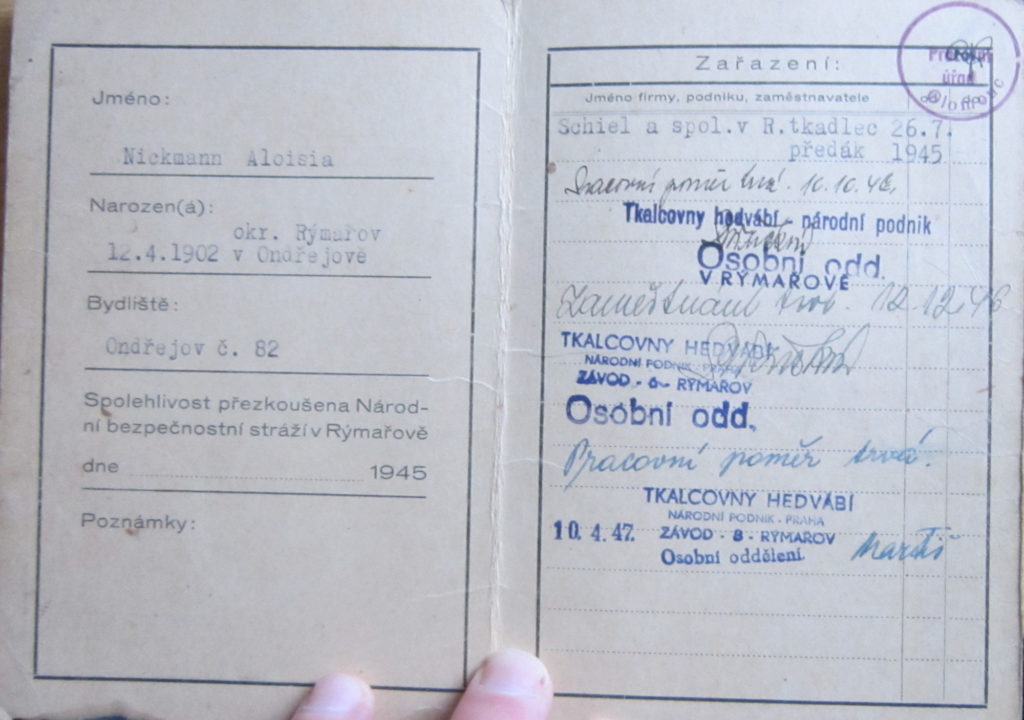 Jméno:
Nickmann Aloisia
Narozen(á):
okr. Rýmařov
12.4.1902 v Ondřejově
Bydliště:
Ondřejov č. 82
Spolehlivost přezkoušena Národ-
ní bezpečnostní stráží v Rýmařově
dne 1945
Poznámky:
úřad
Zařazení:
Jméno firmy, podniku, zaměstnavatele
Schiel a spol.v R.tkadlec 26.7.
předák 1945
Pracovní poměr trvá. 10.10.46.
Tkalcovny hedvábí - národní podnik
Osobní odd.
V RÝMAŘOVĚ
Zaměstnání trvá. 12.12.46
TKALCOVNY HEDVÁBÍ
NÁRODNÍ PODNIK - PRAHA
ZÁVOD - 6 - RÝMAŘOV
Osobní odd.
Pracovní poměr trvá.
TKALCOVNY HEDVÁBÍ
NÁRODNÍ PODNIK - PRAHA
10. 4. 47. ZÁVOD - 8 - RÝMAŘOV
Osobní oddělení.